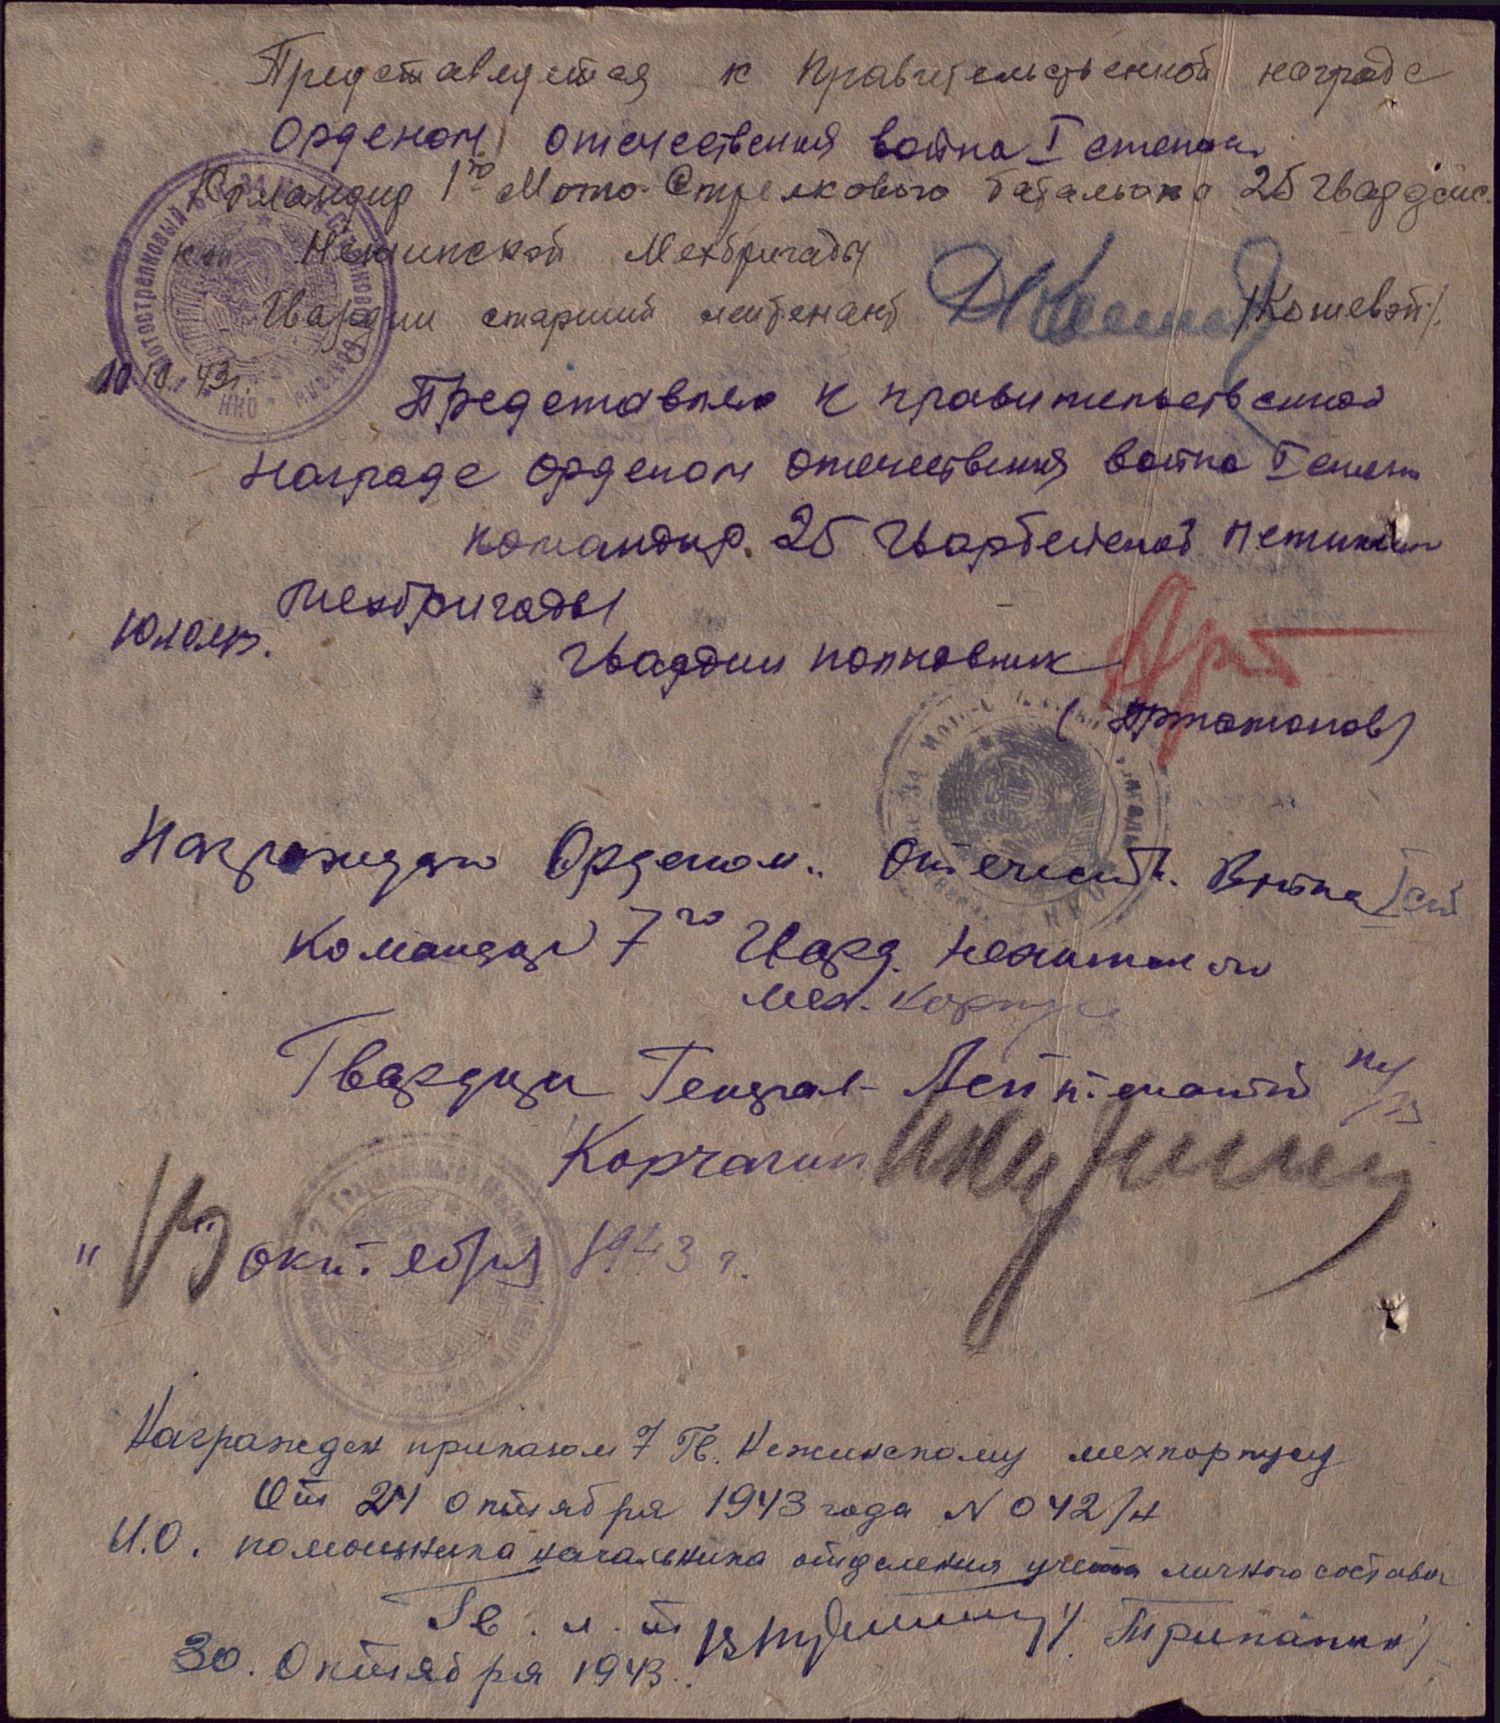 Представляется к Правительственной награде
Орденом отечественная война I степени
Командир 1го Мото-Стрелкового батальона 25 Гвардейс-
кой Нежинской Мехбригады
Гвардии старший лейтенант /Кошевой/.
10.10.43г.
Представляю к правительственной
награде орденом отечественная война I степен
командир 25 Гвардейской Нежинской
мехбригады
10.10.43г.
Гвардии полковник
(Артаманов)
Награждаю Орденом „Отечеств. Война I ст
Командир 7го Гвард. Нежинского
мех. корпуса
Гвардии Генерал-Лейтенант
Корчагин
" 13 " октября 1943 г.
Награжден приказом 7 Гв. Нежинскому мехкорпусу
От 24 Октября 1943 года N 042/н
И.О. помощника начальника отделения учета личного состава
Гв. л-т /Трипанин/
30. Октября 1943.